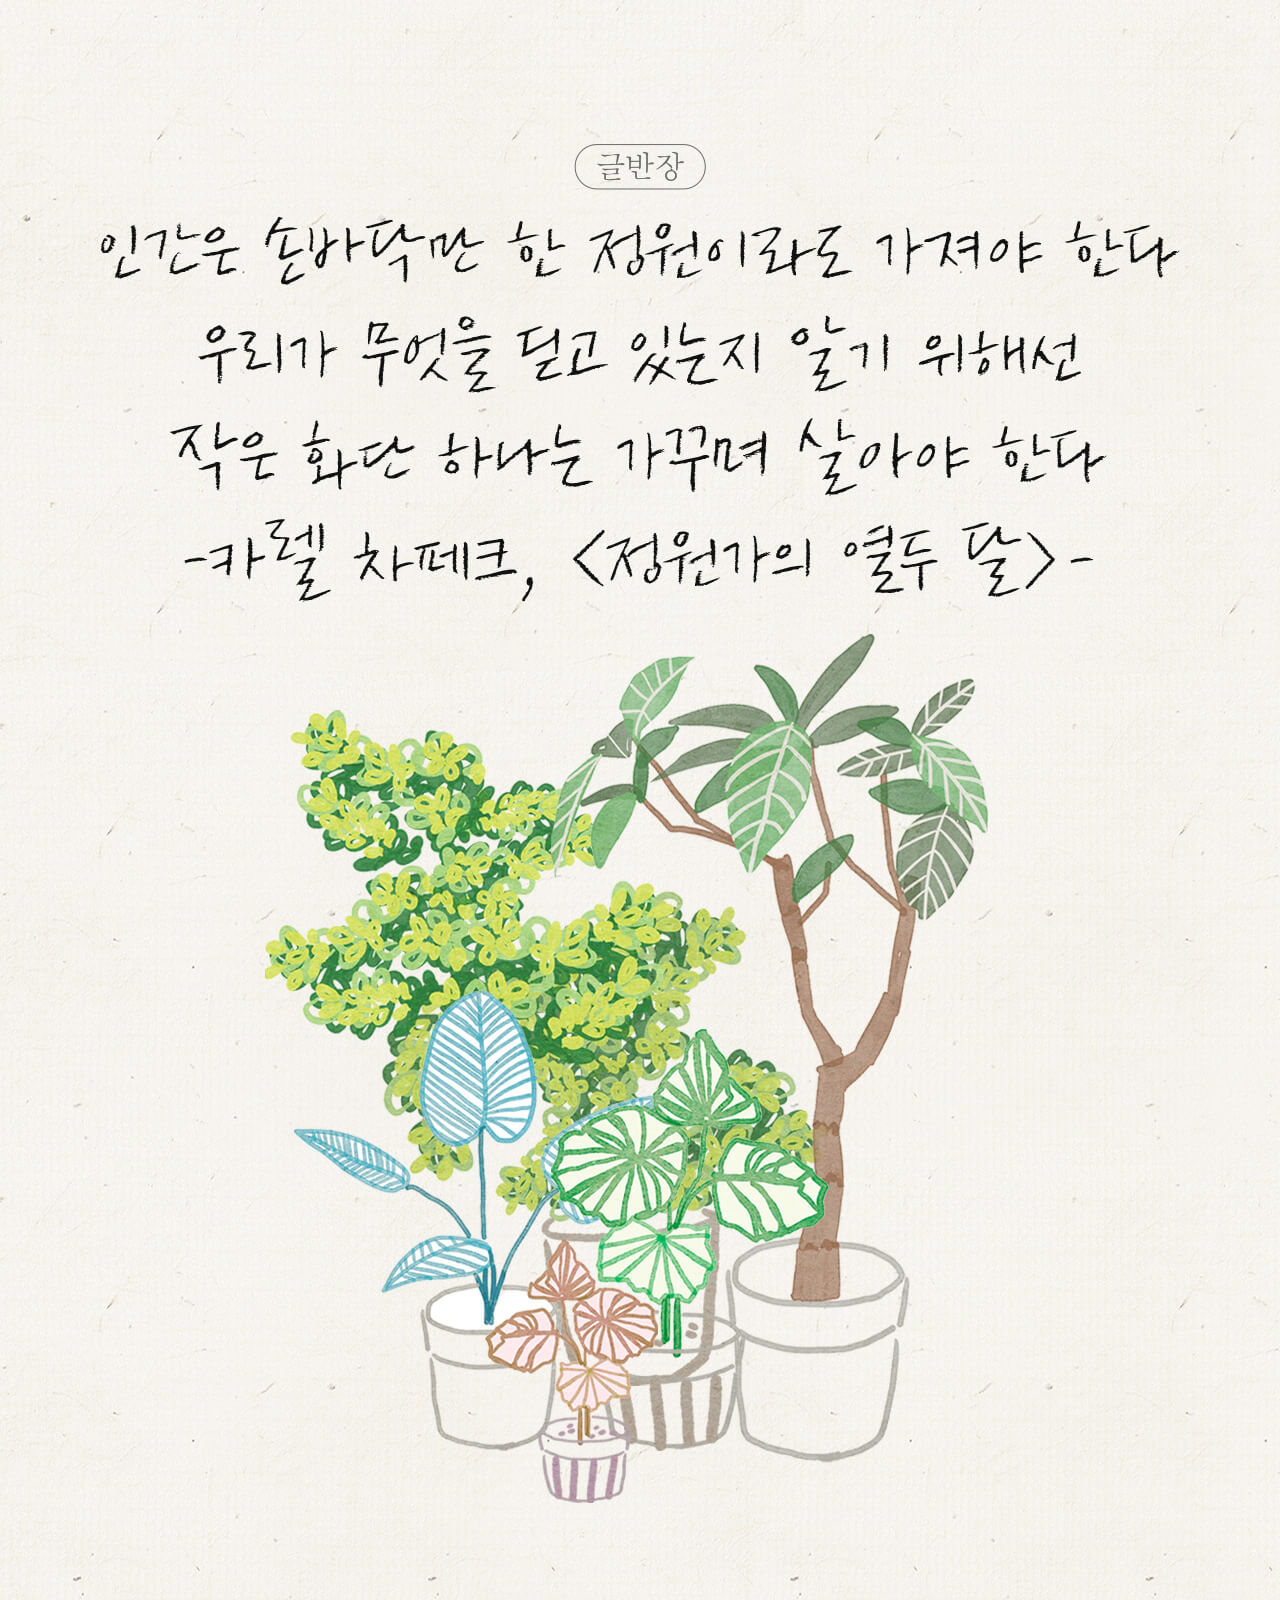 글반장
인간은 손바닥만 한 정원이라도 가져야 한다
우리가 무엇을 딛고 있는지 알기 위해선
작은 화단 하나는 가꾸며 살아야 한다
-카렐 차페크, <정원가의 열두 달>-